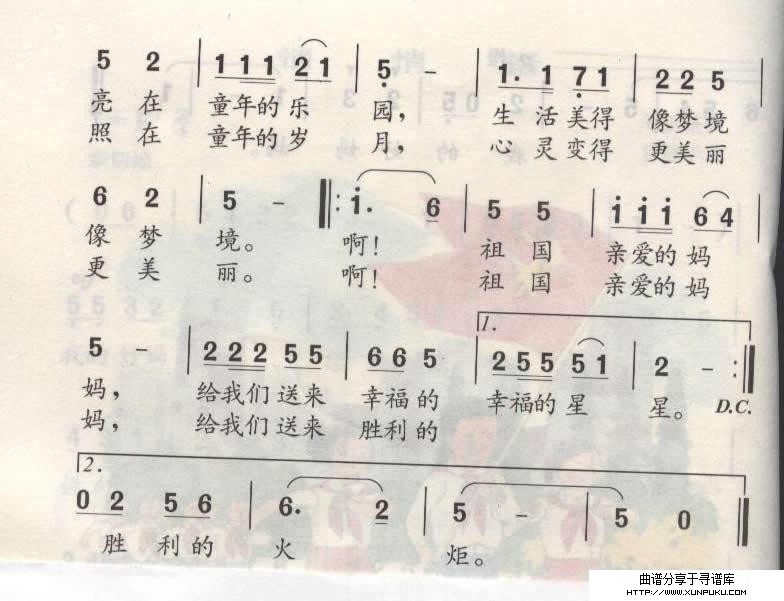 5 2 | 1 1 1 2 1 | 5 - | 1. 1 7 1 | 2 2 5
亮 在 童年的 乐 园， 生 活 美得 像梦 境
照 在 童年的 岁 月， 心 灵 变得 更美 丽
6 2 | 5 - ‖: i. 6 | 5 5 | i i i 6 4
像 梦 境。 啊！ 祖 国 亲爱的 妈
更 美 丽。 啊！ 祖 国 亲爱的 妈
1.
5 - | 2 2 2 5 5 | 6 6 5 | 2 5 5 5 1 | 2 - :‖
妈， 给我们 送来 幸福 的 幸福的 星 星。 D.C.
妈， 给我们 送来 胜利 的
2.
0 2 5 6 | 6. 2 | 5 - | 5 0 ‖
胜 利的 火 炬。
曲谱分享于寻谱库
HTTP://WWW.XUNPUKU.COM